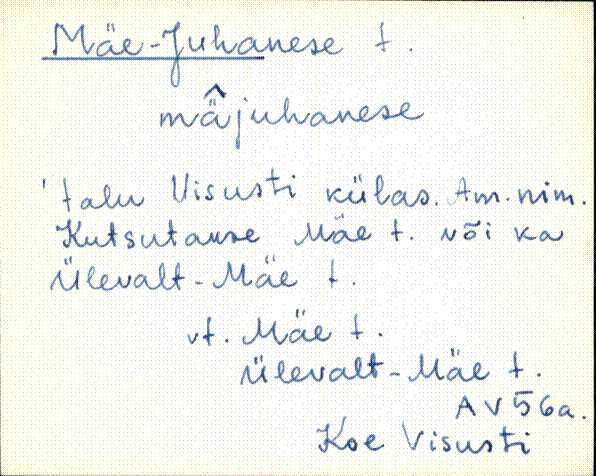 Mäe-Juhanese t.
mä̂juhanese
'talu Visusti külas. Am. nim.
Kutsutakse Mäe t. või ka
Ülevalt-Mäe t.
vt. Mäe t.
Ülevalt-Mäe t.
AV 56a.
Koe Visusti